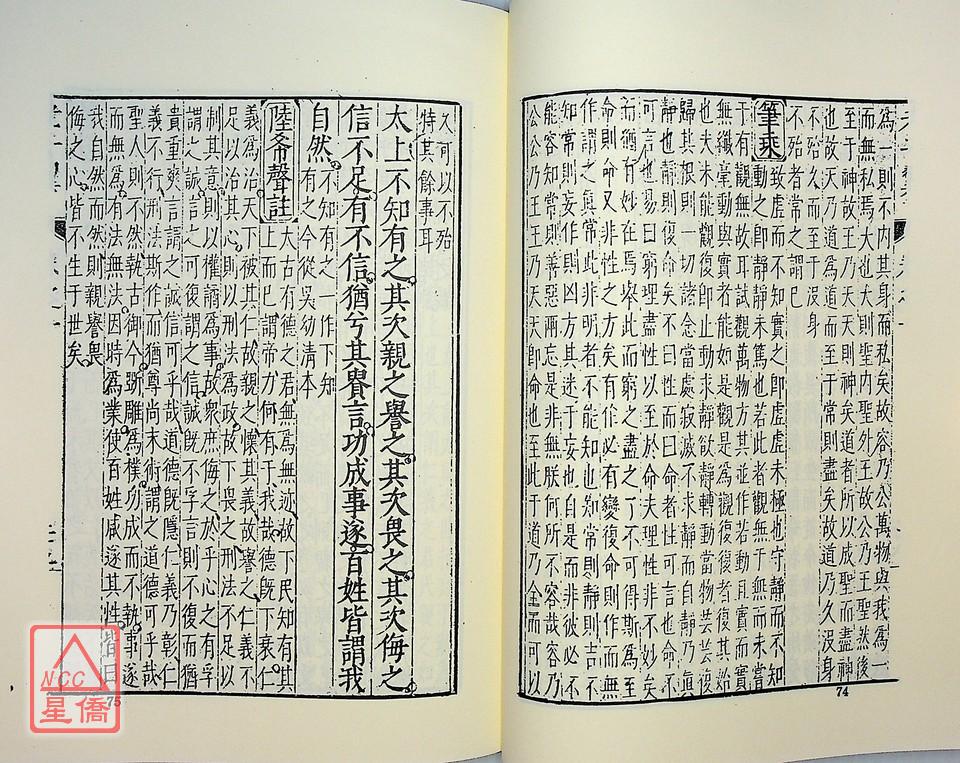 為一則不內其身而私矣故容乃公萬物與我為一
而無私焉大也王則聖內聖外王故曰公乃王聖然後
至于神故王乃天天則神矣道者所以成聖而盡神
也故天乃道為道而至于常則盡矣故道乃久沒身
不殆久而至于沒身
不殆者常之謂已
筆乘 致虛而不知實之即虛虛未極也守靜而不知
動之即靜靜未篤也若此者觀無于無而未嘗
于有觀無故耳試觀萬物方其並作若動且實而實
無纖毫動與實者能如是觀是為觀復觀復者復其始
也夫未能觀復即止動求靜欲靜轉動當物芸芸復
歸其根則一切諸念當處寂滅不求靜而自靜乃真
靜也靜則復命矣不曰性而曰命性可言也命不
可言也易曰窮理盡性以至於命夫理性非不妙矣
而猶有妙在焉舉此而窮之盡之了不可得斯為至
命命而不至非性命之方矣有作必有變復命而無所
作謂之真常此非明者不能知也知常則靜則吉不
知常則妄作則凶方其迷于妄也自是而非彼必不
能容知常則善惡兩忘是非無朕何所不容哉容乃
公公乃王王乃天天即命也至此于道乃全而可以
74
久可以不殆
特其餘事耳
太上不知有之其次親之譽之其次畏之其次侮之
信不足有不信猶兮其貴言功成事遂百姓皆謂我
自然 不知有之一作下知
有之今從吳幼清本
陸希聲註 太古有德之君無為無迹故下民知有其
上而已謂帝力何有于我哉德既下衰仁
義為治天下被其仁故親之懷其義故譽之仁義不
足以治其心則以刑法為政故下畏之刑法不足以
制其意則以權譎為事故衆庶侮之於乎心之有孚
謂之誠言之可復謂之信誠既不孚言則不復而猶
貴重爽言謂之誠信可乎哉道德既隱仁義乃彰仁
義不行刑法斯作而猶尊尚末術謂之道德可乎哉
聖人則不然執古御今斵雕為樸功成而不執事遂
而無為有法無法因時為業使百姓咸遂其性皆曰
我自然而然則親譽畏
侮之心皆不生于世矣
75
NCC
星僑